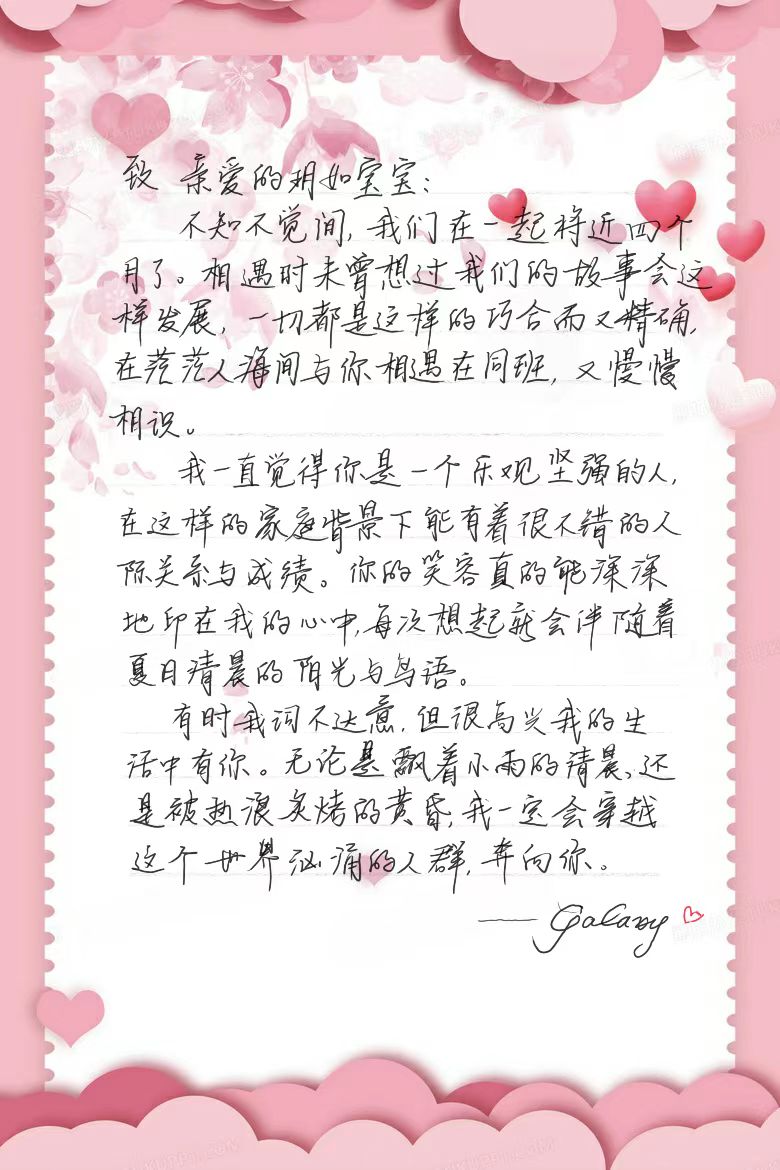 致 亲爱的玥如宝宝：
不知不觉间，我们在一起将近四个
月了。相遇时未曾想过我们的故事会这
样发展，一切都是这样的巧合而又精确，
在茫茫人海间与你相遇在同班，又慢慢
相识。
我一直觉得你是一个乐观坚强的人，
在这样的家庭背景下能有着很不错的人
际关系与成绩。你的笑容真的能深深
地印在我的心中，每次想起就会伴随着
夏日清晨的阳光与鸟语。
有时我词不达意，但很高兴我的生
活中有你。无论是飘着小雨的清晨、还
是被热浪炙烤的黄昏，我一定会穿越
这个世界汹涌的人群，奔向你。
——Galaxy